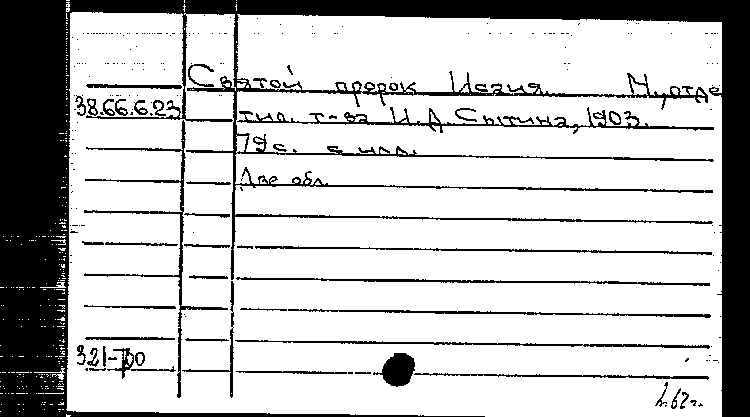 Святой пророк Исаия М., отде
38.66.6.23 тип. т-ва И.Д. Сытина, 1903.
79 с. с илл.
Две обл.
321-700